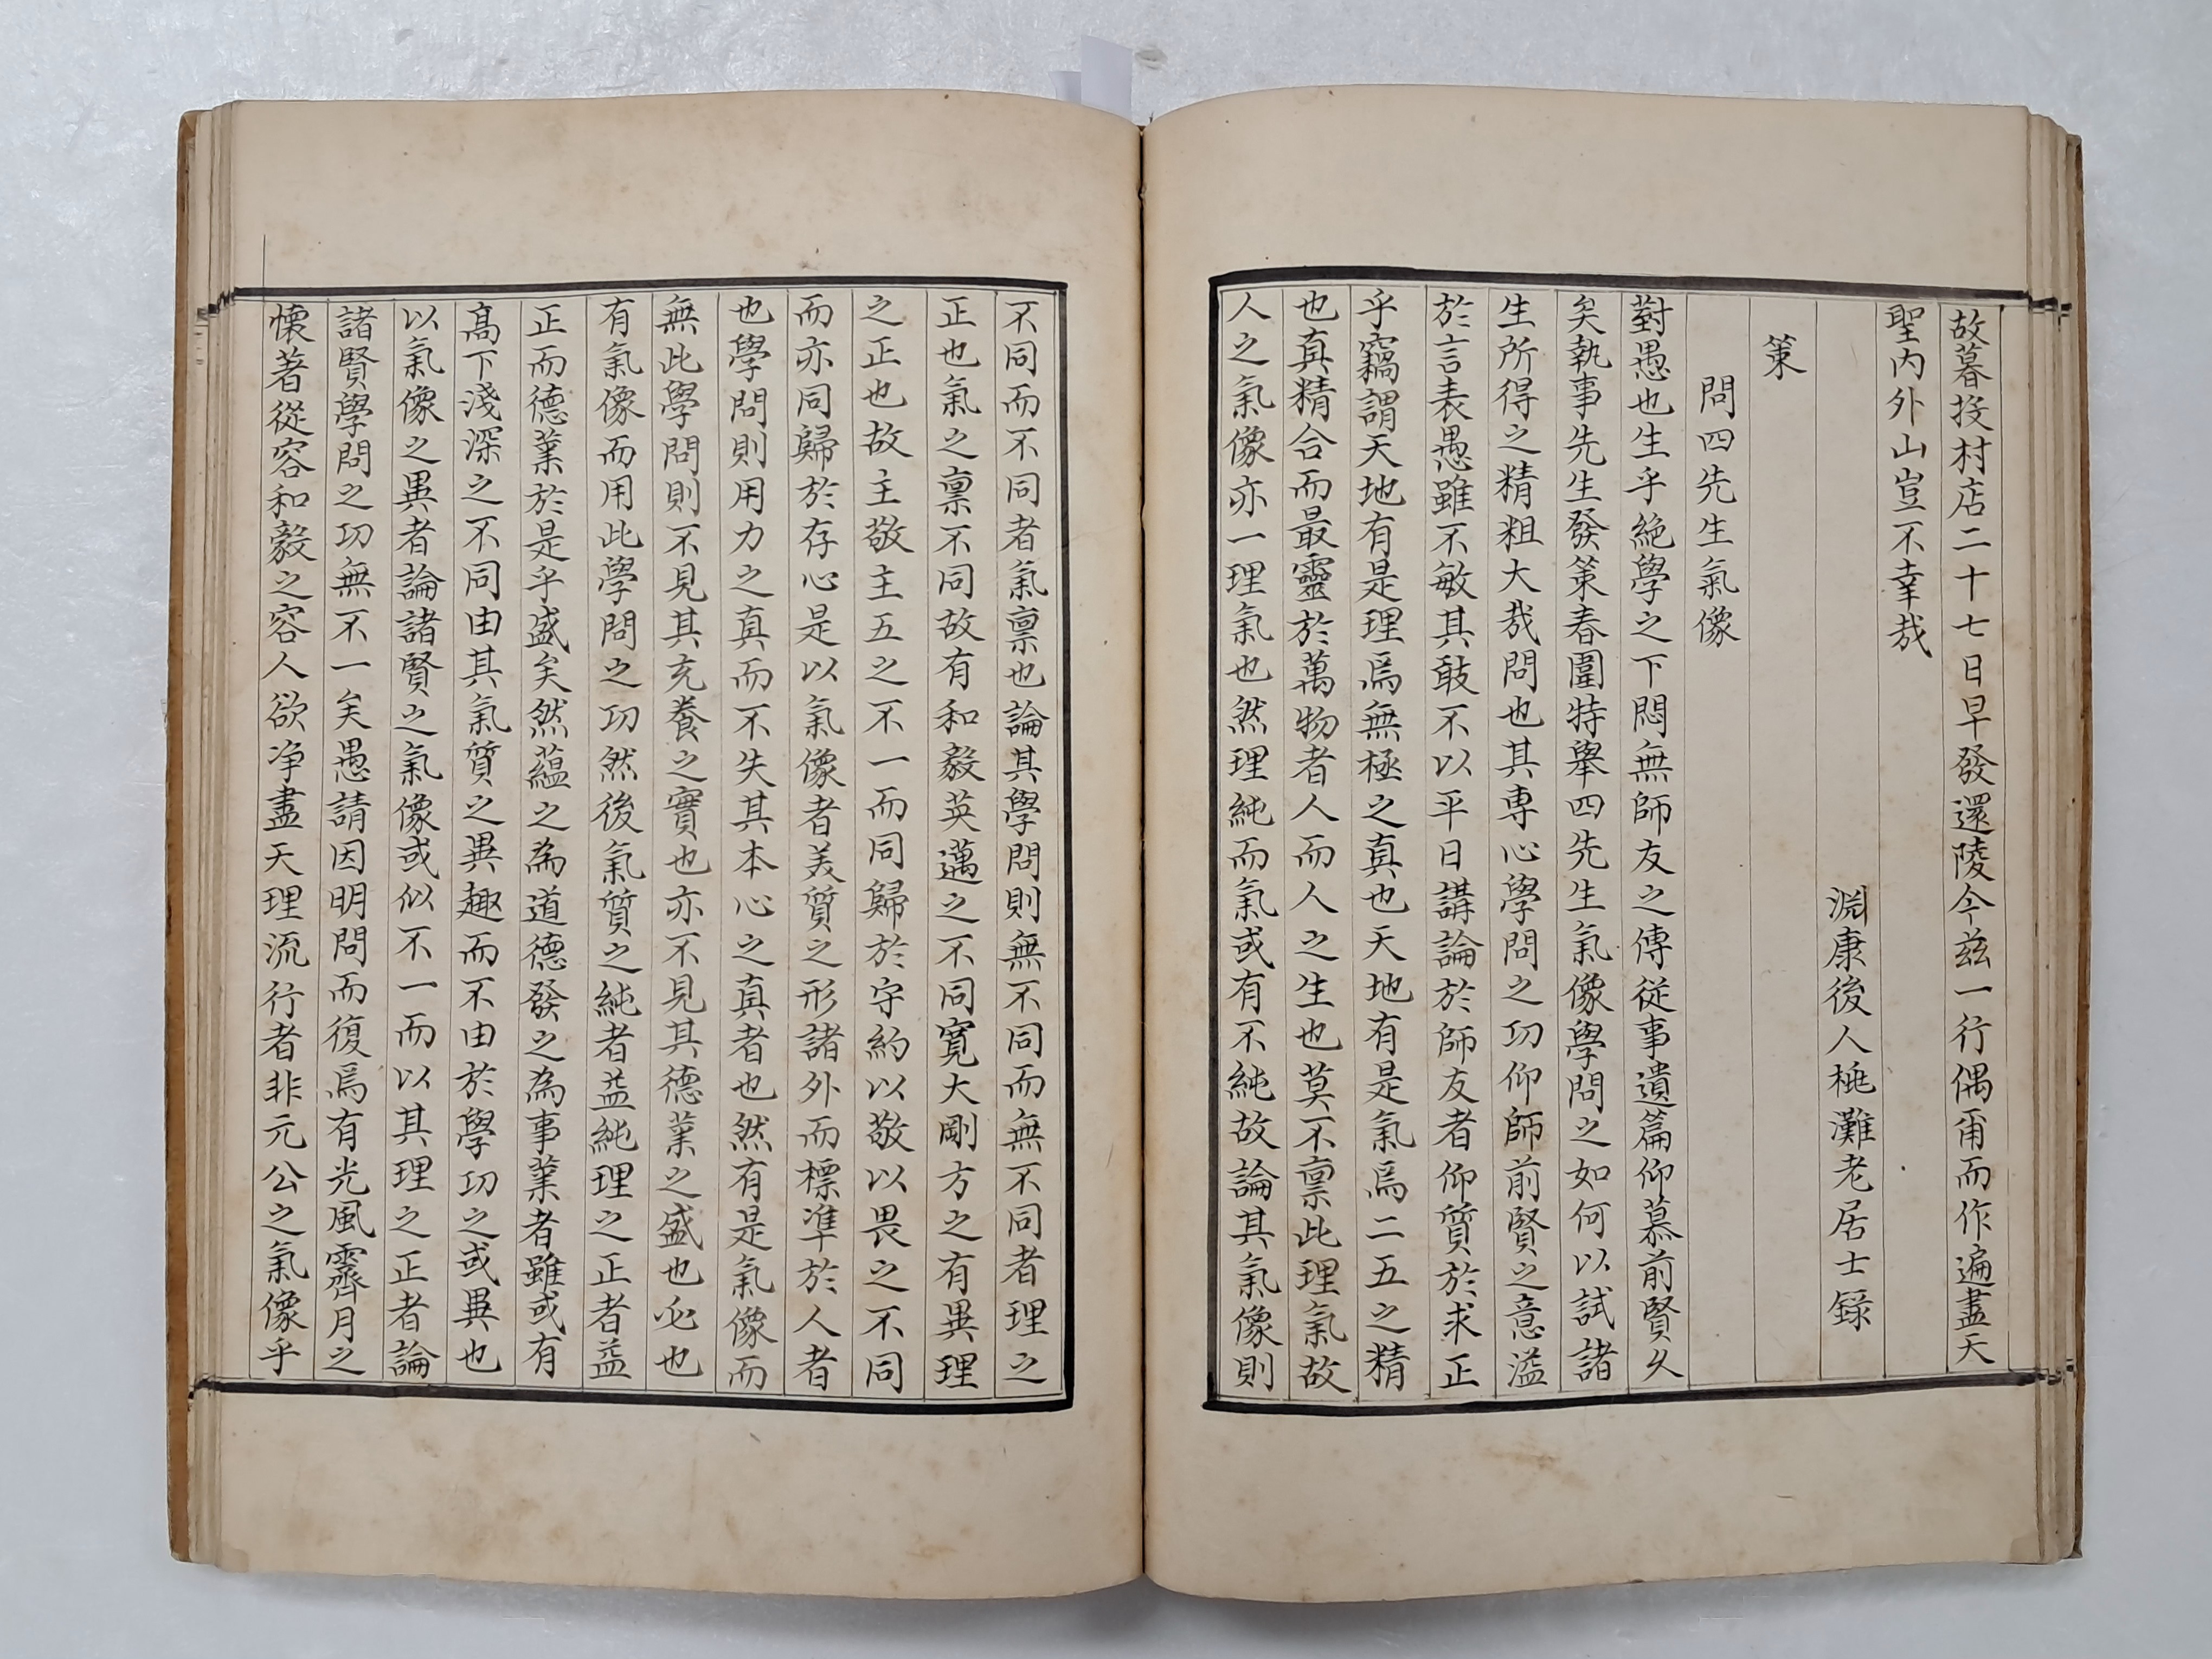 故暮投村店二十七日早發還陵今玆一行偶甭而作遍盡天
聖內外山豈不幸哉
淵康後人桃灘老居士錄
策
問四先生氣像
對愚也生乎絶學之下悶無師友之傳從事遺篇仰慕前賢久
矣執事先生發策春圍特擧四先生氣像學問之如何以試諸
生所得之精粗大哉問也其專心學問之功仰師前賢之意溢
於言表愚雖不敏其敢不以平日講論於師友者仰質於求正
乎竊謂天地有是理焉無極之真也天地有是氣焉二五之精
也真精合而最靈於萬物者人而人之生也莫不禀此理氣故
人之氣像亦一理氣也然理純而氣或有不純故論其氣像則
不同而不同者氣禀也論其學問則無不同而無不同者理之
正也氣之禀不同故有和毅英邁之不同寬大剛方之有異理
之正也故主敬主五之不一而同歸於守約以敬以畏之不同
而亦同歸於存心是以氣像者美質之形諸外而標準於人者
也學問則用力之真而不失其本心之真者也然有是氣像而
無此學問則不見其充養之實也亦不見其德業之盛也必也
有氣像而用此學問之功然後氣質之純者益純理之正者益
正而德業於是乎盛矣然蘊之為道德發之為事業者雖或有
高下淺深之不同由其氣質之異趣而不由於學功之或異也
以氣像之異者論諸賢之氣像或似不一而以其理之正者論
諸賢學問之功無不一矣愚請因明問而復焉有光風霽月之
懷著從容和毅之容人欲净盡天理流行者非元公之氣像乎